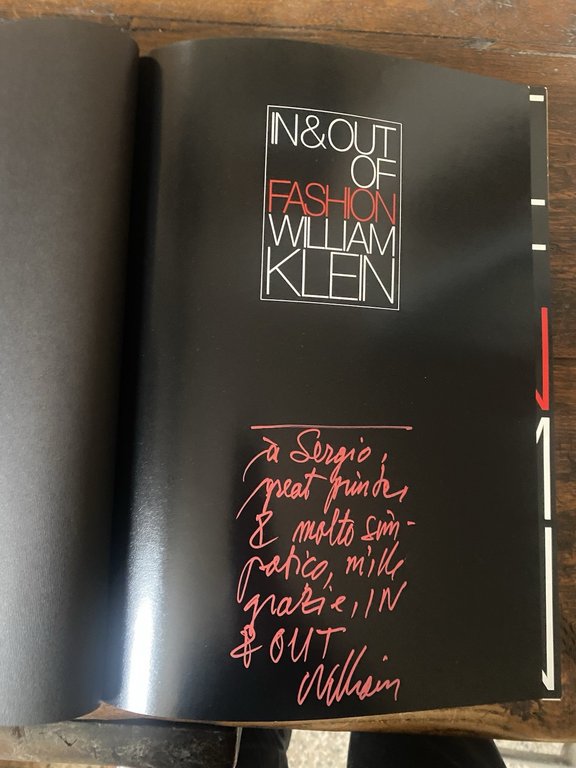 IN & OUT
OF
FASHION
WILLIAM
KLEIN
à Sergio,
great printer
& molto sim-
patico, mille
grazie, IN
& OUT
William